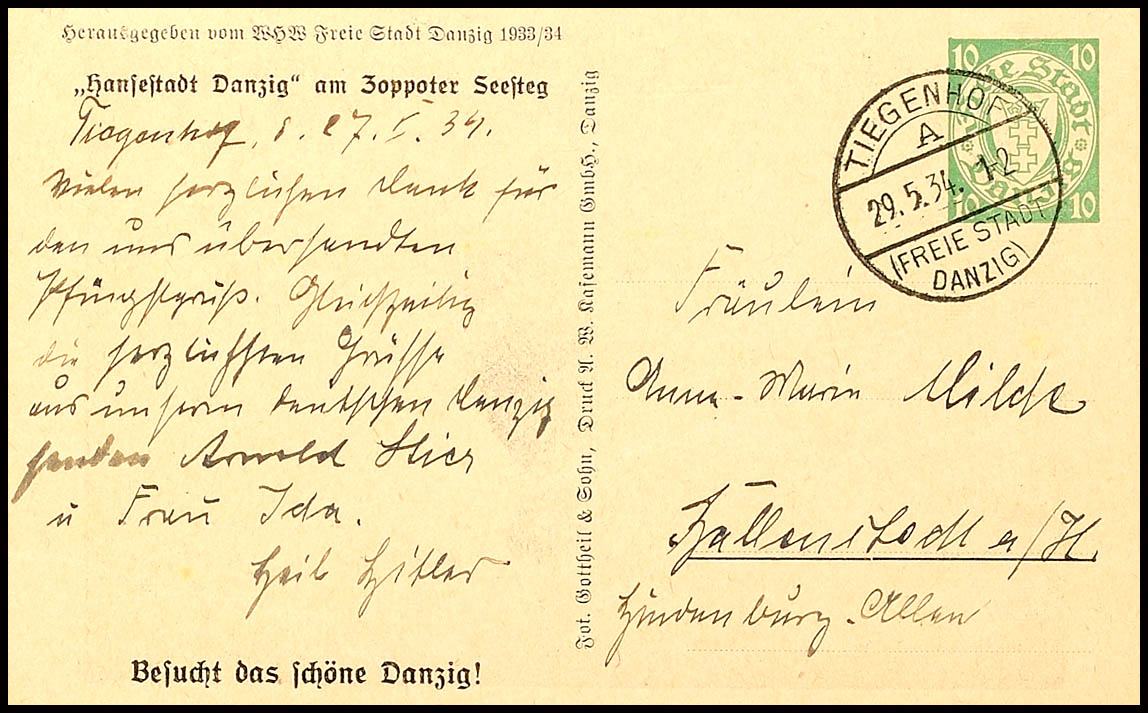 Herausgegeben vom WHW Freie Stadt Danzig 1933/34
„Hansestadt Danzig" am Zoppoter Seesteg
Tiegenhof, d. 27. V. 34.
Vielen herzlichen Dank für
den uns übersandten
Pfingstgruß. Gleichzeitig
die herzlichsten Grüsse
aus unserm deutschen Danzig
senden Arnold
u Frau Ida.
Heil Hitler
Besucht das schöne Danzig!
Fot. Gottheil & Sohn, Druck A. W. Kafemann GmbH., Danzig
10 Freie Stadt Danzig 10
10 10
TIEGENHOF
A
29.5.34. 1-2
(FREIE STADT
DANZIG)
Fräulein
Anna-Marie Milde
Ballenstedt a/H
Hindenburg-Allee